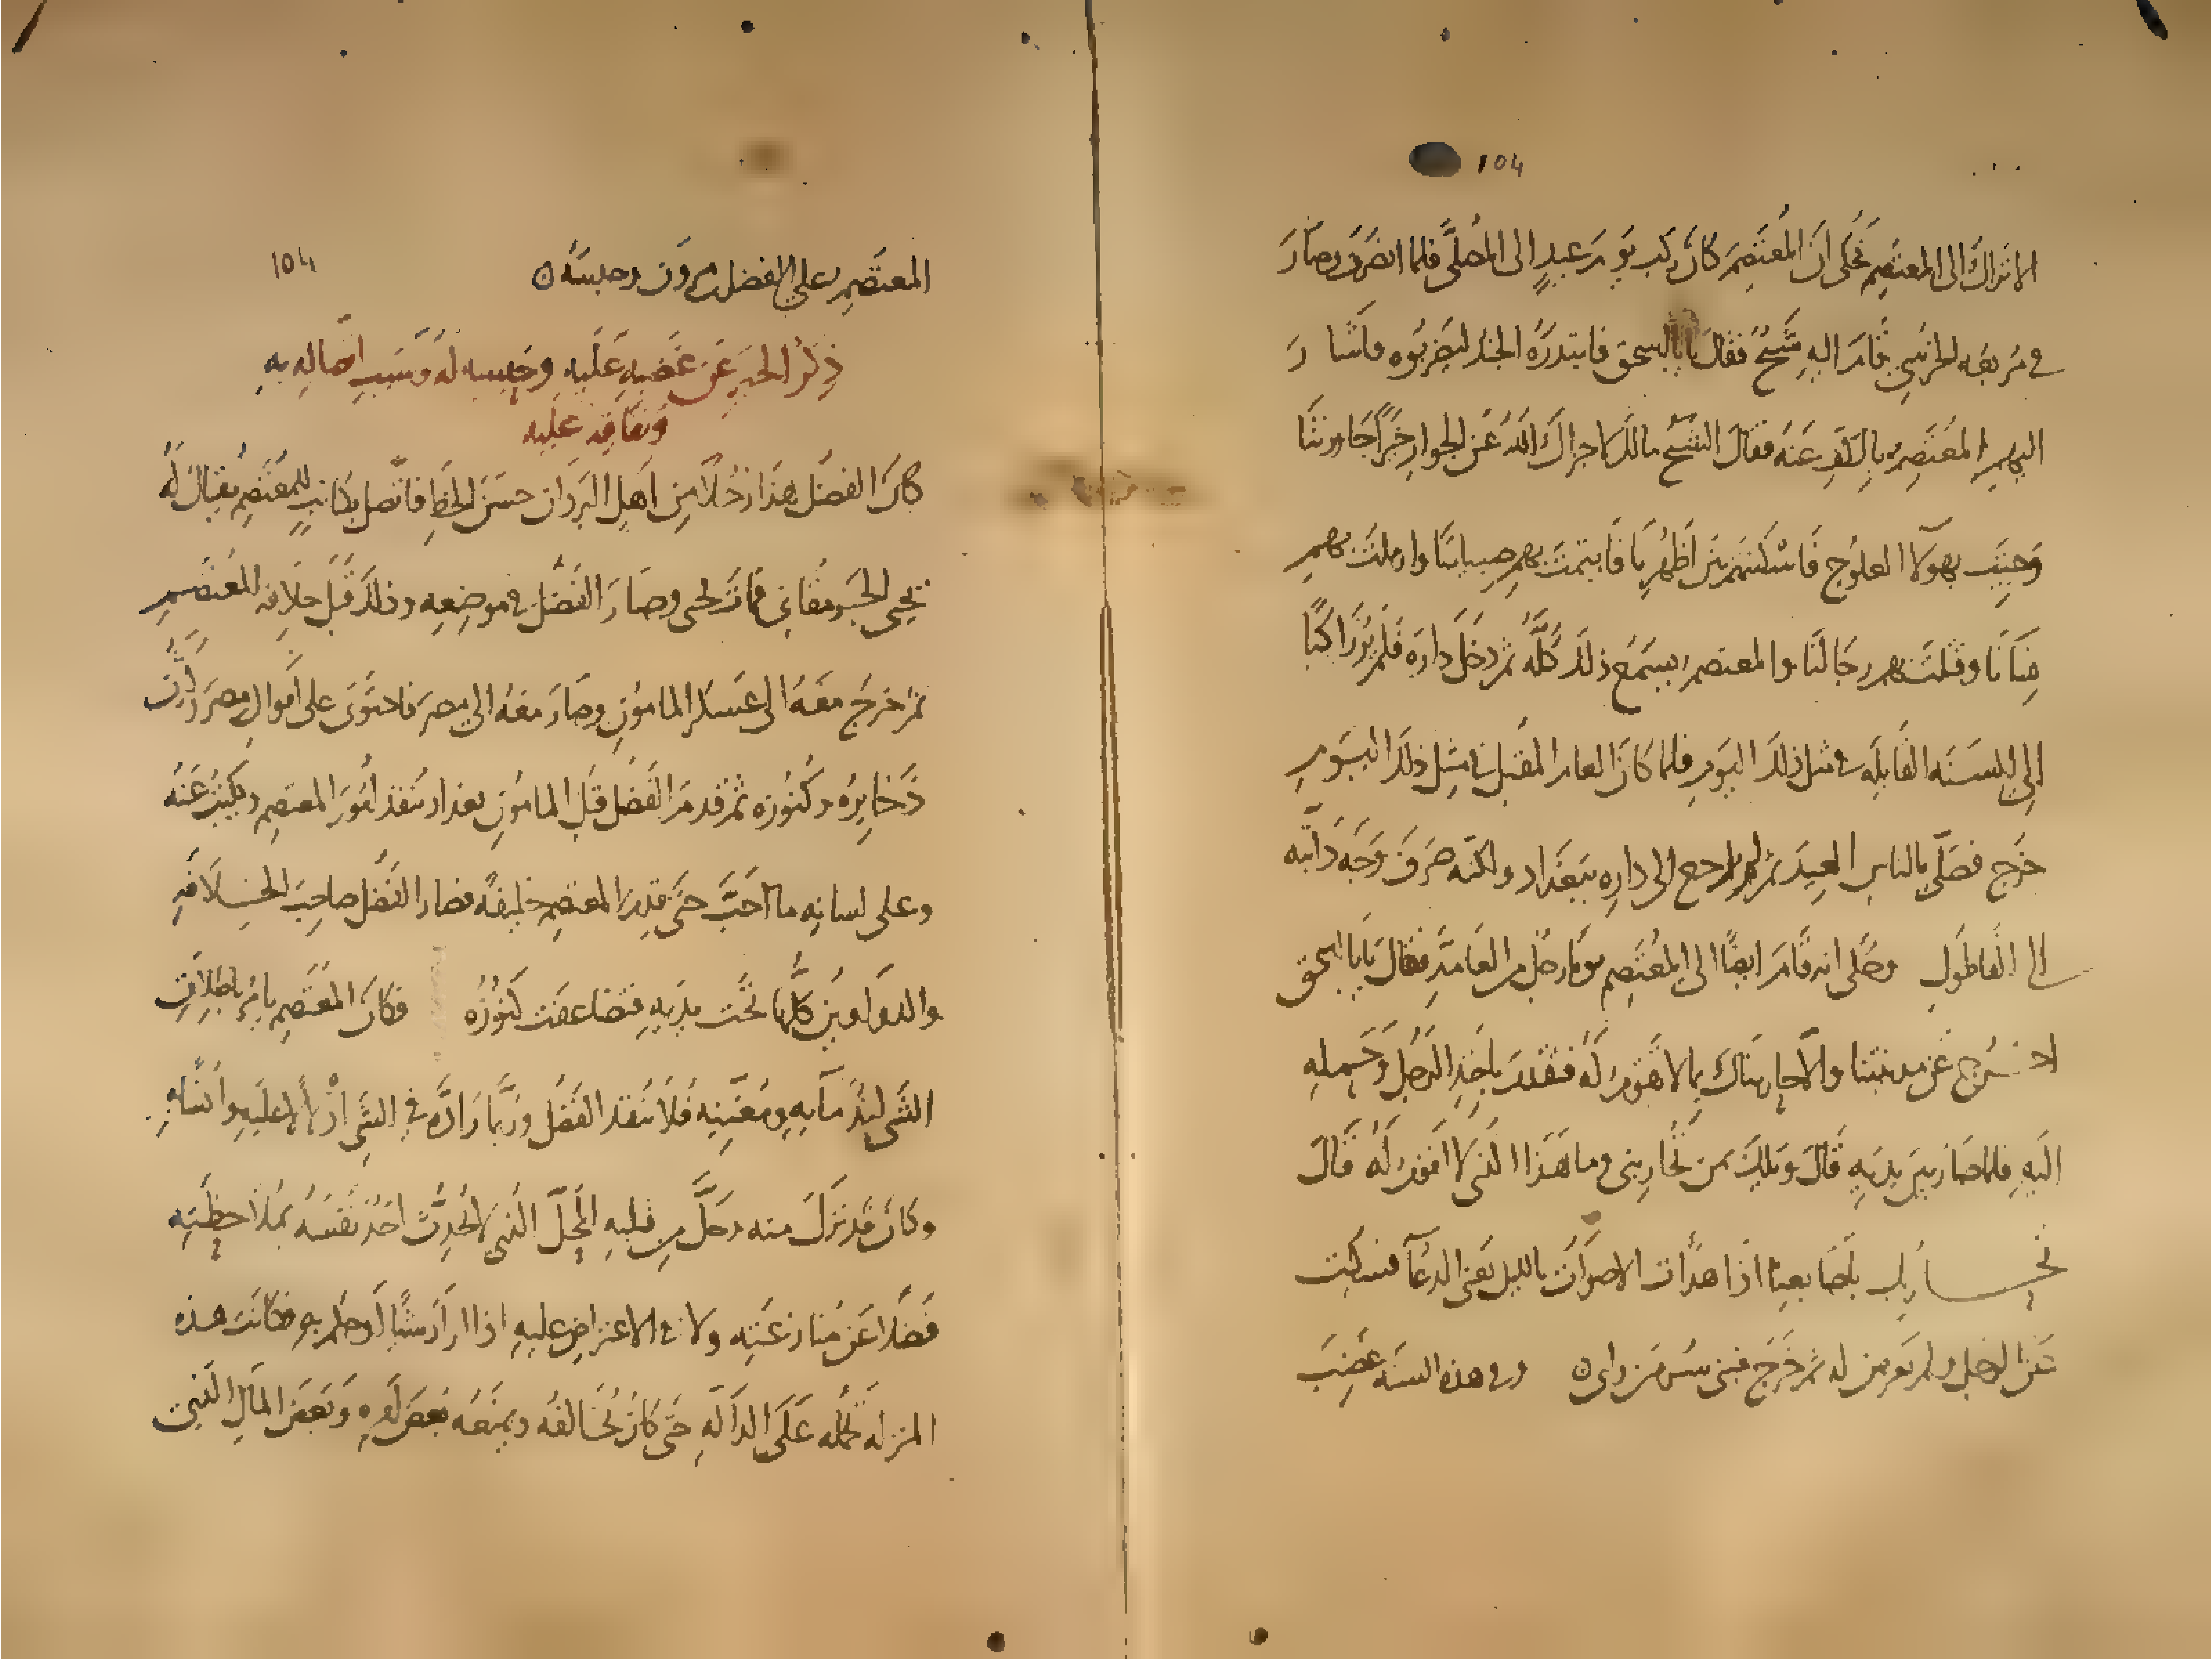 104
الاتراك الى المعتصم فحكى ان المعتصم كان ركب يوم عيد الى المصلى فلما انصرف وصار
في مربعه الحرشي قام اليه شيخ فقال يابا اسحق فابتدره الجند ليضربوه فاشار
اليهم المعتصم بالكف عنه فقال الشيخ مالك لا جزاك الله عن الجوار خيرا جاورتنا
وجيت بهولا العلوج فاسكنتهم بين اظهرنا فايتمت بهم صبياننا وارملت بهم
نسانا وقتلت بهم رجالنا والمعتصم يسمع ذلك كله ثم دخل داره فلم ير راكبا
الى السنه القابله في مثل ذلك اليوم فلما كان العام المقبل في مثل ذلك اليوم
خرج فصلى بالناس العيد ثم لم يرجع الى داره ببغداد ولكنه صرف وجه دابته
الى القاطول وحكى انه قام ايضا الى المعتصم يوما رجل من العامه فقال يابا اسحق
اخرج عن مدينتنا والا حاربناك بما لا تقوم له فتقدم باخذ الرجل وحمله
اليه فلما صار بين يديه قال ويلك بمن تحاربني وما هذا الذي لا اقوم له قال
نحاربك باصابعنا اذا هدات الاصوات بالليل يعني الدعا فسكت
عن الرجل ولم يعرض له ثم خرج فبنى سر من راى ه وفي هذه السنه غضب
104
المعتصم على الفضل بن مروان وحبسه ه
ذكر الخبر عن غضبه عليه وحبسه له وسبب اتصاله به
ونفاقه عليه
كان الفضل هذا رجلا من اهل البردان حسن الخط فاتصل بكاتب للمعتصم يقال له
يحيى الجرمقاني فمات يحيى وصار الفضل في موضعه وذلك قبل خلافه المعتصم
ثم خرج معه الى عسكر المامون وصار معه الى مصر فاحتوى على اموال مصر
ذخايره وكنوزه ثم قدم الفضل قبل المامون بغداد ينفذ امور المعتصم ويكتب عنه
وعلى لسانه ما احب حتى قدم المعتصم خليفه فصار الفضل صاحب الخلافه
والدواوين كلها تحت يديه فتضاعفت كنوزه فكان المعتصم يامر باطلاق
الشي لندمايه ومغنيه فلا ينفذ الفضل وربما راده في الشي ادلالا عليه وانسا به
وكان قد نزل منه وحل من قلبه المحل الذي لا يحدث احد نفسه بملاحظته
فضلا عن منازعته ولا في الاعتراض عليه اذا اراد شيا او حكم به فكانت هذه
المنزله تحمله على الداله حتى كان يخالفه ويمنعه بعض لهوه وبعض المال الذي